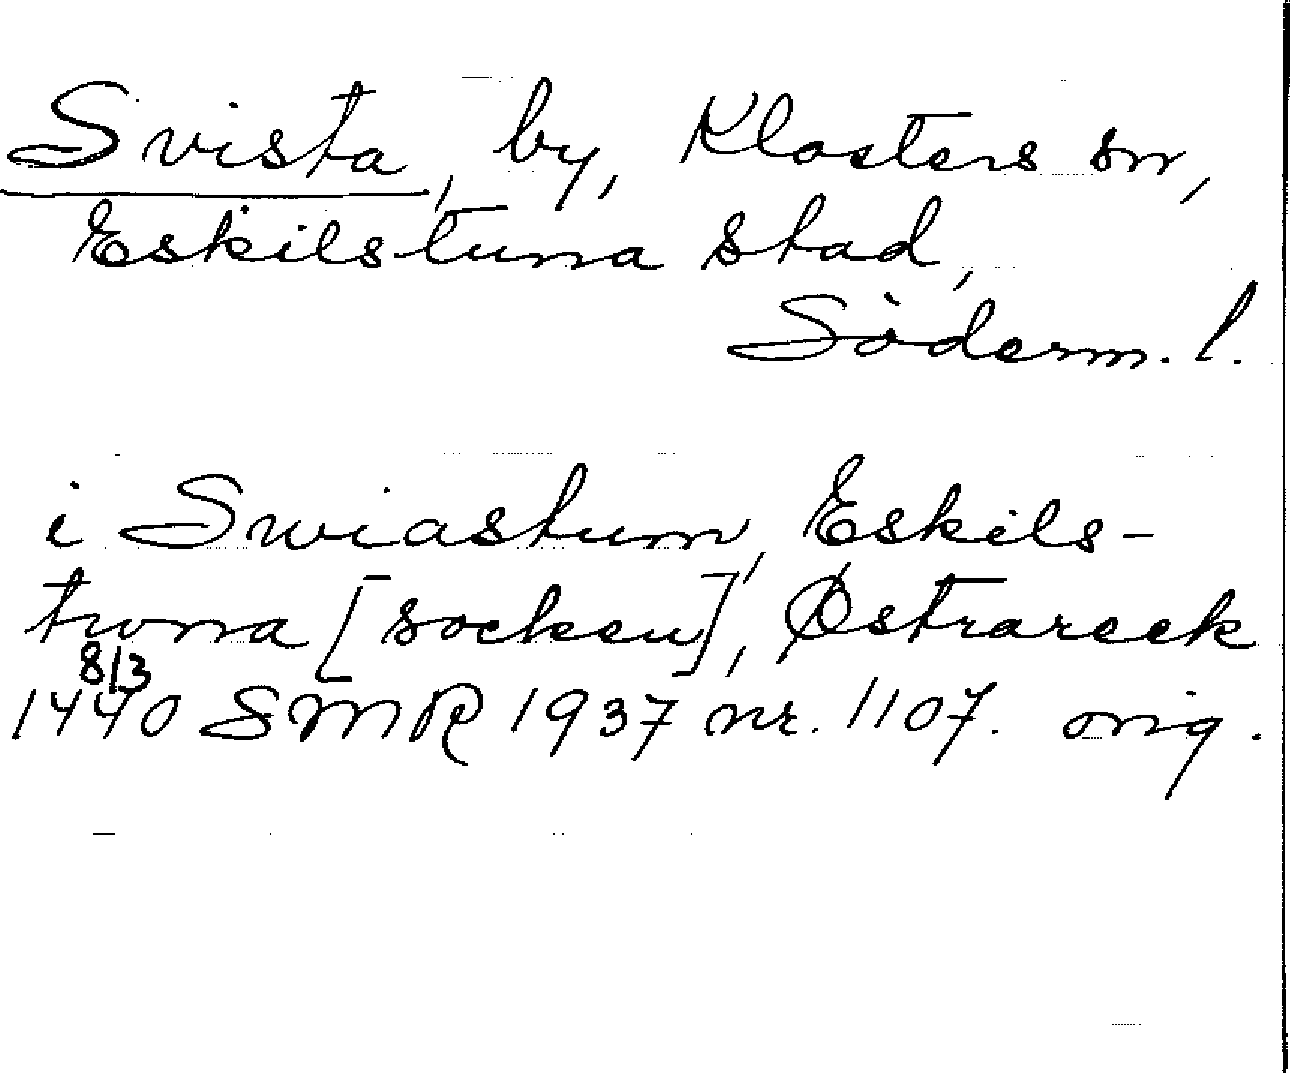 Svista, by, Klosters sn,
Eskilstuna stad,
Söderm. l.
i Swiastum, Eskils-
tuna [socken], Østrareek
8/3
1440 SMR 1937 nr. 1107. orig.